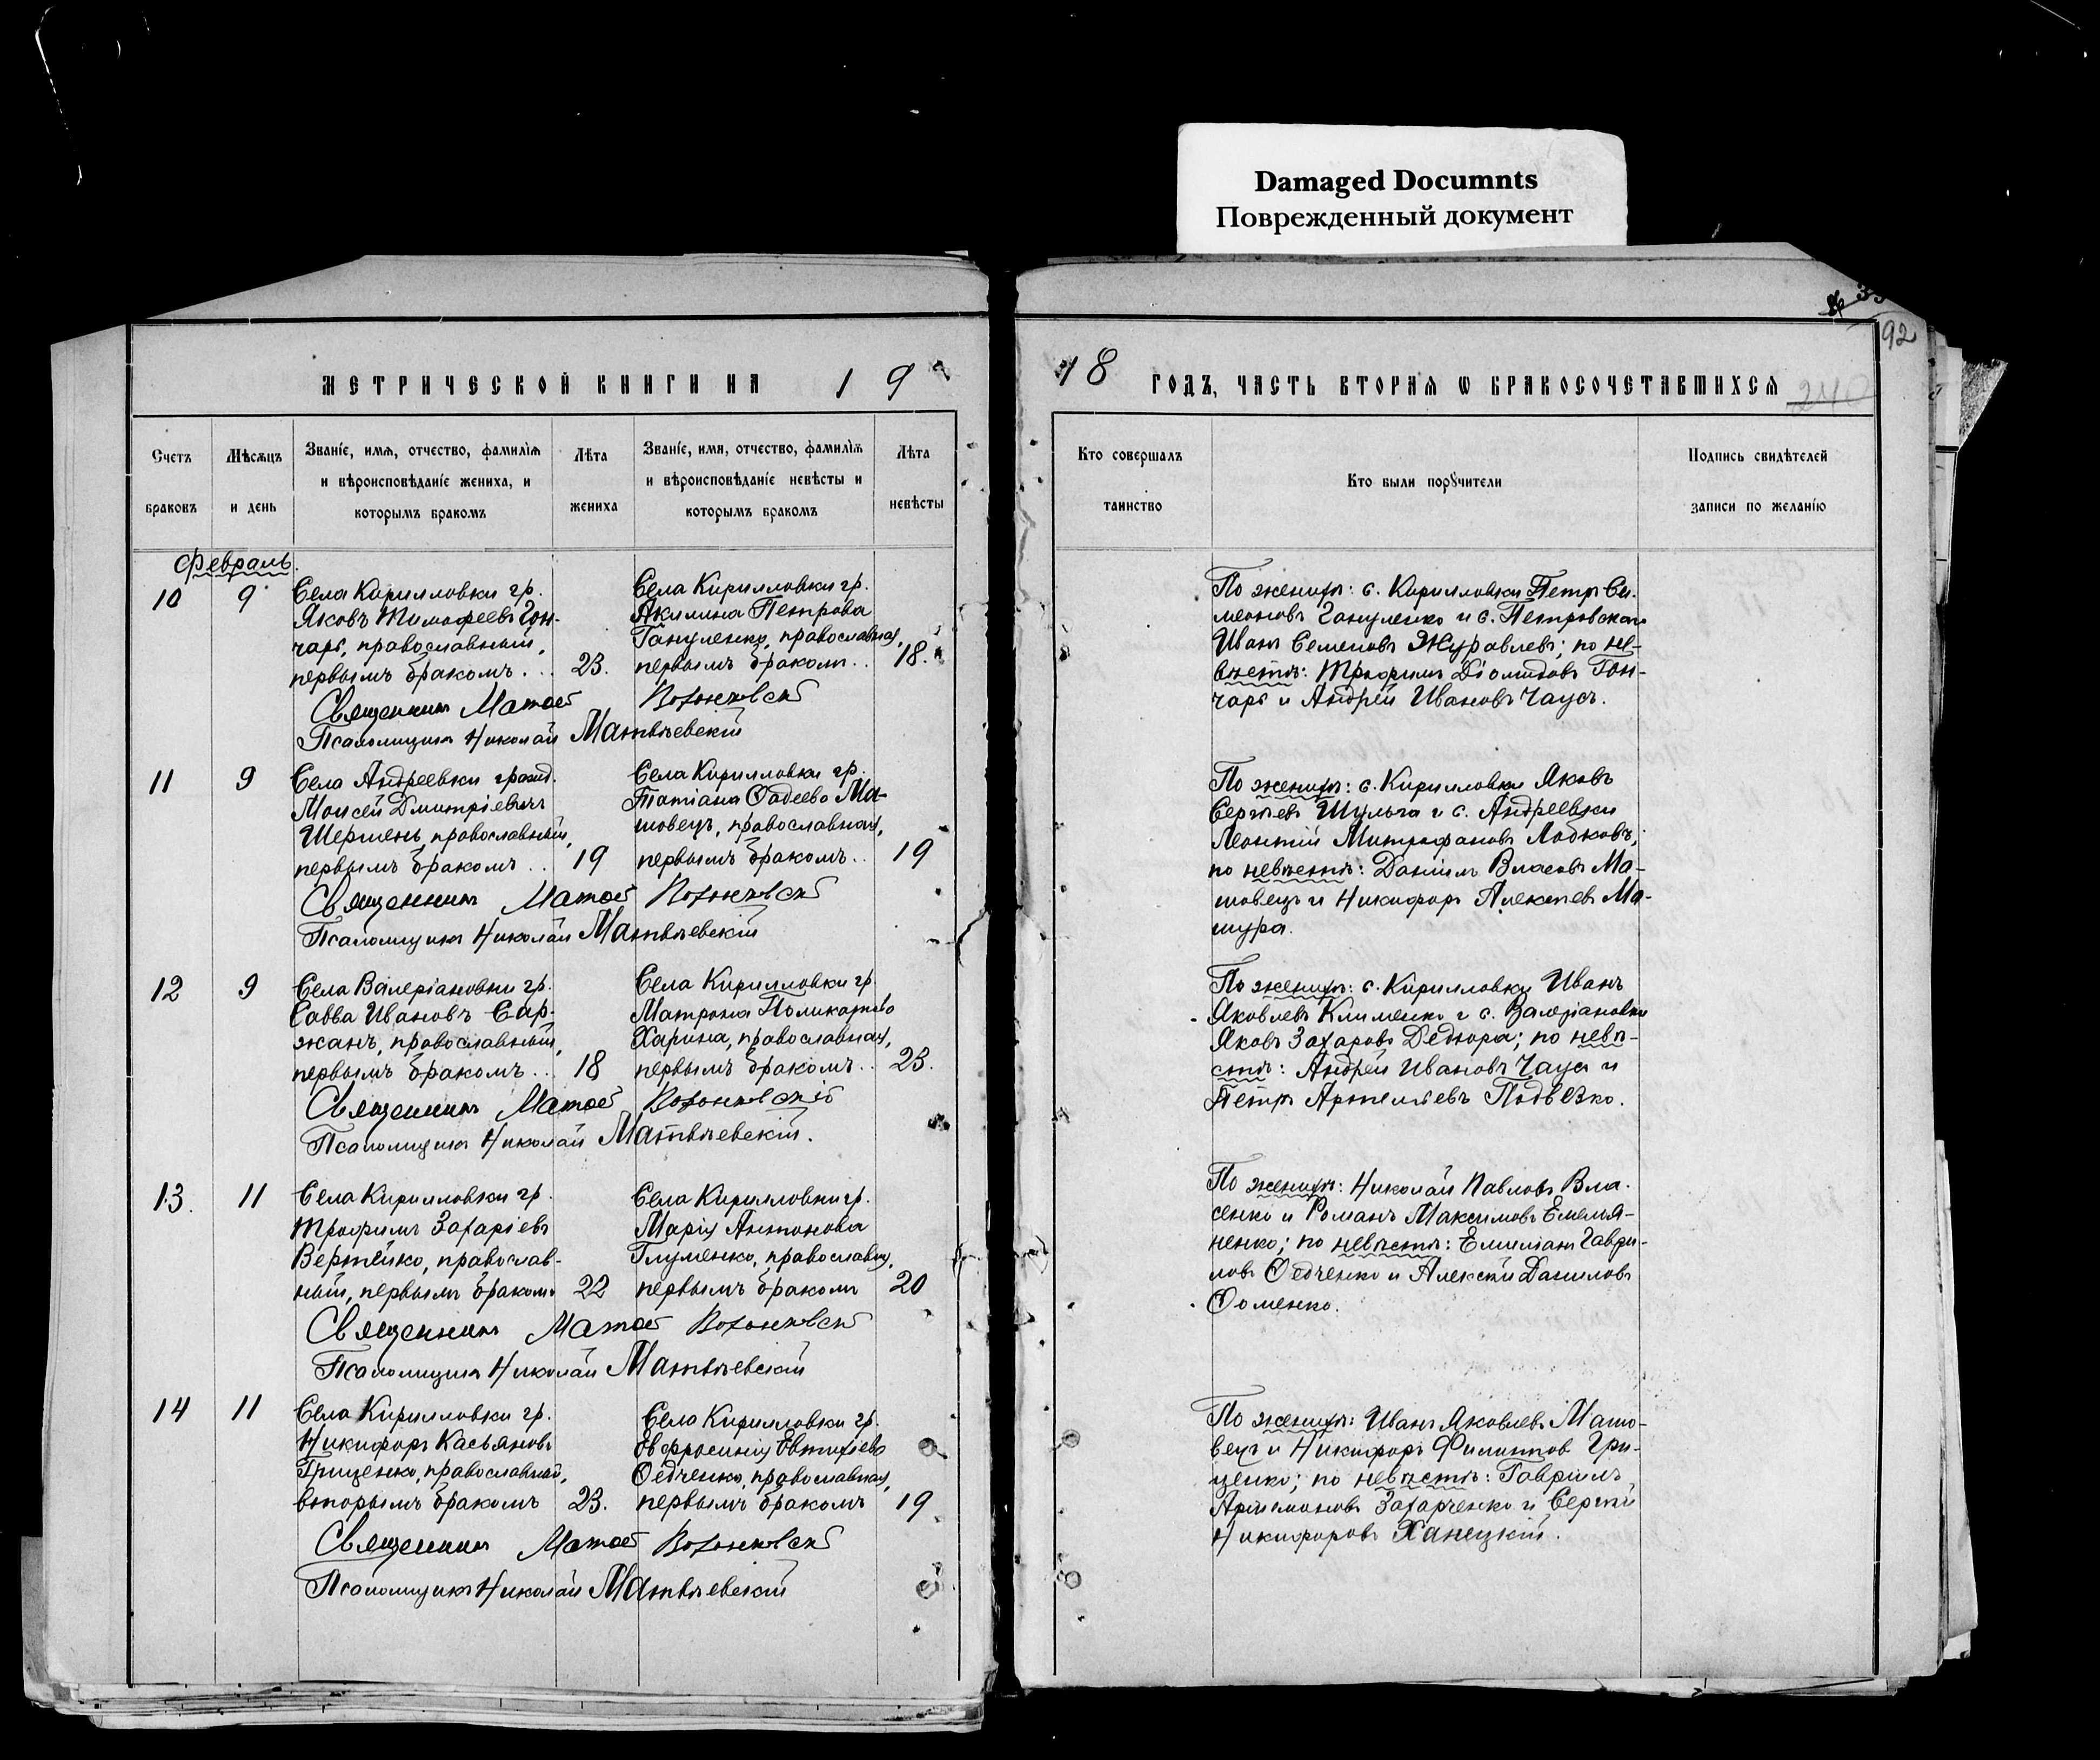 Damaged Documnts
Поврежденный документ
92
240
МЕТРИЧЕСКОЙ КНИГИ НА 1 9
18 ГОДЪ, ЧАСТЬ ВТОРАЯ Ѡ БРАКОСОЧЕТАВШИХСЯ
Счетъ браковъ
Мѣсяцъ и день
Званіе, имя, отчество, фамилія
и вѣроисповѣданіе жениха, и
которымъ бракомъ
Лѣта жениха
Званіе, имя, отчество, фамилія
и вѣроисповѣданіе невѣсты и
которымъ бракомъ
Лѣта невѣсты
Кто совершалъ таинство
Кто были порꙋчители
Подпись свидѣтелей
записи по желанію
Февраль.
10 9
Села Кирилловки гр.
Яковъ Тимофеевъ Гон-
чаръ, православный,
первымъ бракомъ... 23.
Села Кирилловки гр.
Акилина Петрова
Гануленко, православная,
первымъ бракомъ.. 18.
Священникъ Матѳей
Псаломщикъ Николай Матвѣевскій
По женихѣ: с. Кирилловки Петръ Си-
меоновъ Гануленко и с. Петровскаго
Иванъ Семеновъ Журавлевъ; по не-
вѣстѣ: Трофимъ Діомидовъ Гон-
чаръ и Андрей Ивановъ Чаусъ.
11 9
Села Андреевки гражд.
Моисей Дмитріевичъ
Шермень, православный,
первымъ бракомъ.. 19
Села Кирилловки гр.
Татіана Ѳадеева Ма-
шовецъ, православная,
первымъ бракомъ.. 19
Священникъ Матѳей
Псаломщикъ Николай Матвѣевскій
По женихѣ: с. Кирилловки Яковъ
Сергѣевъ Шульга и с. Андреевки
Леонтій Митрофановъ Лобковъ;
по невѣстѣ: Даніилъ Власовъ Ма-
шовецъ и Никифоръ Алексѣевъ Ма-
шура.
12 9
Села Валеріановки гр.
Савва Ивановъ Сар-
жанъ, православный,
первымъ бракомъ.. 18
Села Кирилловки гр.
Матрона Поликарпова
Харина, православная,
первымъ бракомъ.. 23.
Священникъ Матѳей
Псаломщикъ Николай Матвѣевскій.
По женихѣ: с. Кирилловки Иванъ
Яковлевъ Клименко и с. Валеріановки
Яковъ Захаровъ Дедюра; по невѣ-
стѣ: Андрей Ивановъ Чаусъ и
Петръ Артемьевъ Подвезко.
13. 11
Села Кирилловки гр.
Трофимъ Захаріевъ
Вертейко, православ-
ный, первымъ бракомъ 22
Села Кирилловки гр.
Марія Антонова
Глуменко, православная,
первымъ бракомъ 20
Священникъ Матѳей
Псаломщикъ Николай Матвѣевскій
По женихѣ: Николай Павловъ Вла-
сенко и Романъ Максимовъ Емелья-
ненко; по невѣстѣ: Емиліанъ Гаври-
ловъ Ѳедченко и Алексѣй Даниловъ
Ѳоменко.
14 11
Села Кирилловки гр.
Никифоръ Касьяновъ
Гриценко, православный,
вторымъ бракомъ 23.
Села Кирилловки гр.
Евфросинія Евтихіева
Ѳедченко, православная,
первымъ бракомъ 19
Священникъ Матѳей
Псаломщикъ Николай Матвѣевскій
По женихѣ: Иванъ Яковлевъ Машо-
вецъ и Никифоръ Филипповъ Гри-
ценко; по невѣстѣ: Гавріилъ
Захарченко и Сергѣй
Никифоровъ Ханецкій.